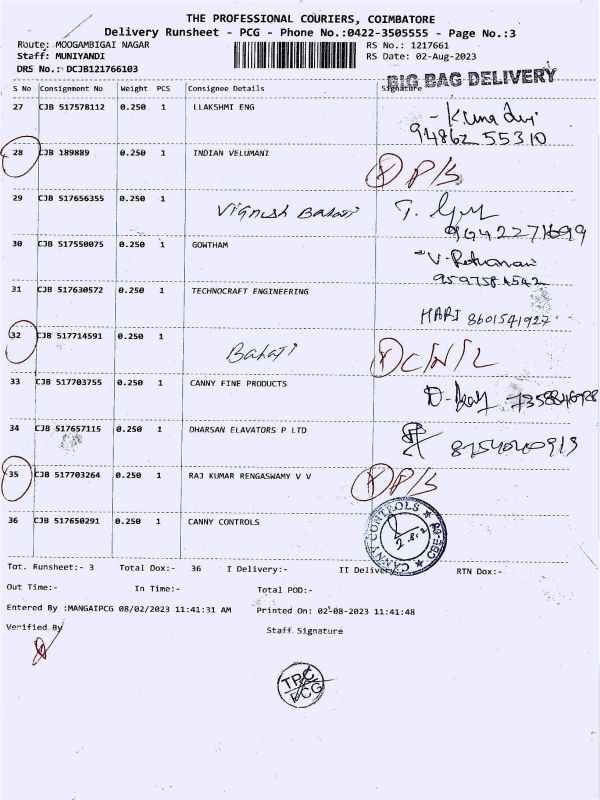 THE PROFESSIONAL COURIERS, COIMBATORE
Delivery Runsheet - PCG - Phone No.:0422-3505555 - Page No.:3
Route: MOOGAMBIGAI NAGAR RS No.: 1217661
Staff: MUNIYANDI RS Date: 02-Aug-2023
DRS No.: DCJB121766103
BIG BAG DELIVERY
S No Consignment No Weight PCS Consignee Details Signature
27 CJB 517578112 0.250 1 LLAKSHMI ENG
94862 55310
28 CJB 189889 0.250 1 INDIAN VELUMANI P/S
29 CJB 517656355 0.250 1 Vignesh Balaji
30 CJB 517550075 0.250 1 GOWTHAM
31 CJB 517630572 0.250 1 TECHNOCRAFT ENGINEERING
HARI 8601541927
32 CJB 517714591 0.250 1 Balaji C/N/L
33 CJB 517703755 0.250 1 CANNY FINE PRODUCTS
34 CJB 517657115 0.250 1 DHARSAN ELAVATORS P LTD
8754040913
35 CJB 517703264 0.250 1 RAJ KUMAR RENGASWAMY V V P/S
36 CJB 517650291 0.250 1 CANNY CONTROLS
CANNY CONTROLS
Tot. Runsheet:- 3 Total Dox:- 36 I Delivery:- II Delivery:- RTN Dox:-
Out Time:- In Time:- Total POD:-
Entered By :MANGAIPCG 08/02/2023 11:41:31 AM Printed On: 02-08-2023 11:41:48
Verified By Staff Signature
TPC
PCG